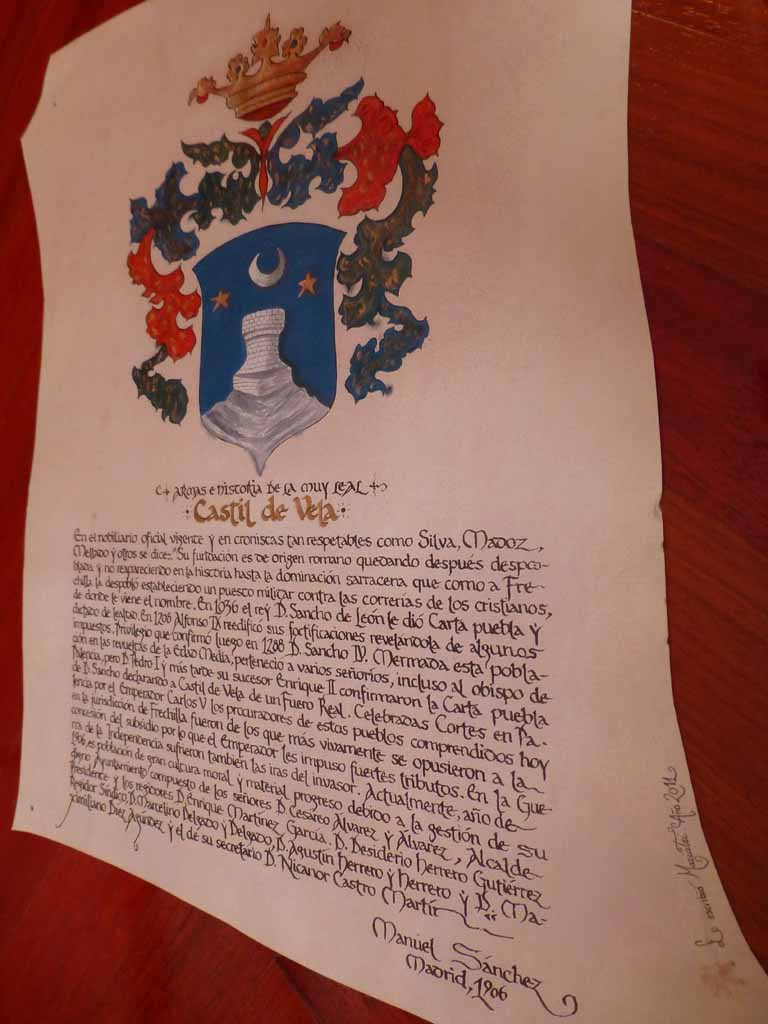 Armas e historia de la muy leal
Castil de Vela
En el nobiliario oficial vigente y en cronicas tan respetables como Silva, Madoz,
Mellado y otros se dice: "Su fundación es de origen romano quedando después despo-
blada y no reapareciendo en la historia hasta la dominación sarracena que como a Fre-
chilla la despobló estableciendo un puesto militar contra las correrías de los cristianos,
de donde le viene el nombre. En 1036 el rey D. Sancho de León le dió Carta puebla y
dictado de lealtad. En 1206 Alfonso IX reedificó sus fortificaciones revelandola de algunos
impuestos. Privilegio que confirmó luego en 1288 D. Sancho IV. Mermada esta pobla-
ción en las revueltas de la Edad Media, perteneció a varios señoríos, incluso al obispo de
Palencia, pero D. Pedro I y más tarde su sucesor Enrique II confirmaron la Carta puebla
de D. Sancho declarando a Castil de Vela de un Fuero Real. Celebradas Cortes en Pa-
lencia por el Emperador Carlos V los procuradores de estos pueblos comprendidos hoy
en la jurisdicción de Frechilla fueron de los que más vivamente se opusieron a la
concesión del subsidio por lo que el Emperador les impuso fuertes tributos. En la Gue-
rra de la Independencia sufrieron también las iras del invasor. Actualmente, año de
1906, es población de gran cultura moral y material progreso debido a la gestión de su
digno Ayuntamiento compuesto de los señores D. Cesáreo Álvarez y Álvarez, Alcalde-
Presidente y los regidores D. Enrique Martínez García. D. Desiderio Herrero Gutiérrez
Regidor Síndico, D. Marcelino Delgado y Delgado, D. Agustín Herrero y Herrero y D. Ma-
ximiliano Diez Agúndez y el de su secretario D. Nicanor Castro Martín
Manuel Sánchez
Madrid, 1906
Lo escribió Año 2012